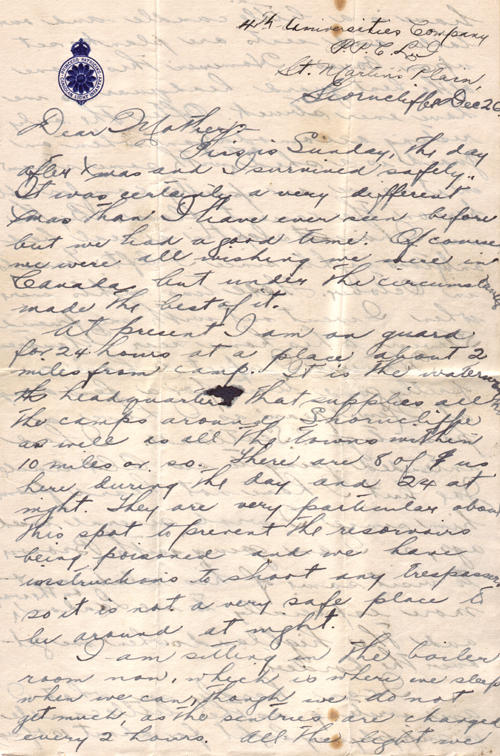 4th Universities Company
P.P.C.L.I
St. Martins Plain,
Shorncliffe Dec 26
Dear Mother:-
This is Sunday, the day
after Xmas and I survived safely.
It was certainly a very different
Xmas than I have ever seen before
but we had a good time. Of course
we were all wishing we were in
Canada but under the circumstances
made the best of it.
At present I am on guard
for 24 hours at a place about 2
miles from camp. It is the
headquarters that supplies all
the camps around Shorncliffe
as well as all the towns within
10 miles or so. There are 8 of us
here during the day and 24 at
night. They are very particular about
this spot to prevent the reservoirs
being poisoned and we have
instructions to shoot any trespassers
so it is not a very safe place to
be around at night.
I am sitting in the boiler
room now, which is where we sleep
when we can, though we do not
get much, as the sentries are changed
every 2 hours. All the light we